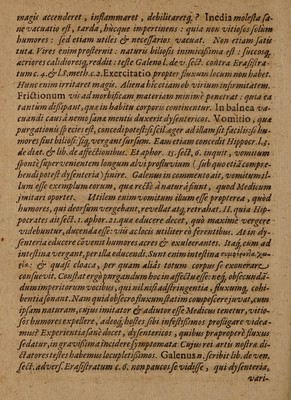 magis accenderet, inflammaret, debilitaretq́;? Inedia molesta sa-
nè vacuatio est, tarda, hucque impertinens: quia non vitiosos solùm
humores: sed etiam utiles & necessarios vacuat. Non etiam satis
tuta. Vires enim prosternit: naturā biliosis inimicißima est: succosq́;
acriores calidioresq́; reddit: teste Galeno l. de v. sect. contra Erasistra-
tum c. 4. & l. 8. meth. c. 2. Exercitatio propter fluxum locum non habet.
Hunc enim irritaret magis. Aliena hîc etiam ob virium infirmitatem.
Frictionum vis ad morbificam materiam minimè penetrat: quia ea
tantùm dißipant, quæ in habitu corporis continentur. In balnea va-
cuandi causâ nemo sanæ mentis duxerit dysentericos. Vomitio, quæ
purgationis species est, concedi potest: si scil. æger ad illam sit facilis: si hu-
mores sint biliosi: siq́; vergant sursum. Eam etiam concedit Hippocr. l. 3.
de diæt. & lib. de affectionibus. Et aphor. 15. sect. 6. inquit, vomitum
spontè supervenientem longum alvi profluvium (sub quo etiā compre-
hendi potest dysenteria) finire. Galenus in commento ait, vomitum il-
lum esse exemplum eorum, quæ rectè à naturâ fiunt, quod Medicum
imitari oportet. Utilem enim vomitum illum esse propterea, quòd
humores, qui deorsum vergebant, revellat atq; retrahat. At quia Hip-
pocrates ait sect. 1. aphor. 21. quæ educere decet, quò maximè vergere
videbuntur, ducenda esse: viâ ac locis utiliter eò ferentibus. At in dy-
senteria educere cōvenit humores acres & exulcerantes. Itaq́; cum ad
intestina vergant, per illa educendi. Sunt enim intestina
& quasi cloaca, per quam aliâs totum corpus se exonerare
consuevit. Constat ergò purgandum hocin affectu esse: neq́; obsecundā-
dum imperitorum vocibus, qui nil nisi adstringentia, fluxumq́; cohi-
bentia sonant. Nam quid obsecro fluxum statim compescere juvat, cum
ipsam naturam, cujus imitator & adiutor esse Medicus tenetur, vitio-
sos humores expellere, adeoq́; hostes sibi infestißimos profligare videa-
mus? Experientia sanè docet, dysentericos, quibus præproperè fluxus
sedatur, in gravißima incidere symptomata. Cujus rei artis nostræ di-
ctatores testes habemus locupletißimos. Galenus n. scribit lib. de ven.
sect. advers. Erasistratum c. 6. non paucos se vidisse, qui dysenteria,
vari-